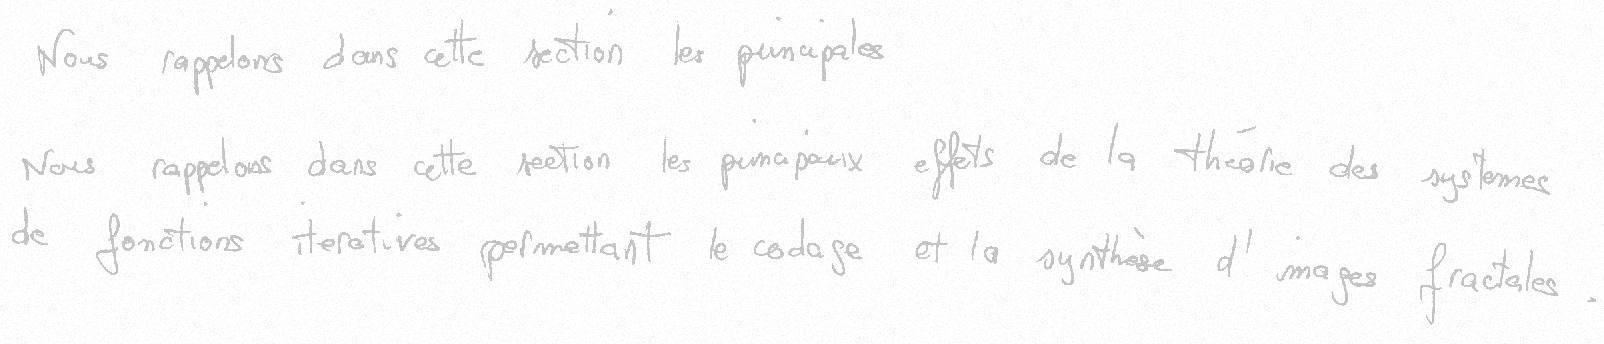 Nous rappelons dans cette section les principales
Nous rappelons dans cette section les principaux effets de la théorie des systemes
de fonctions iteratives permettant le codage et la synthèse d'images fractales.